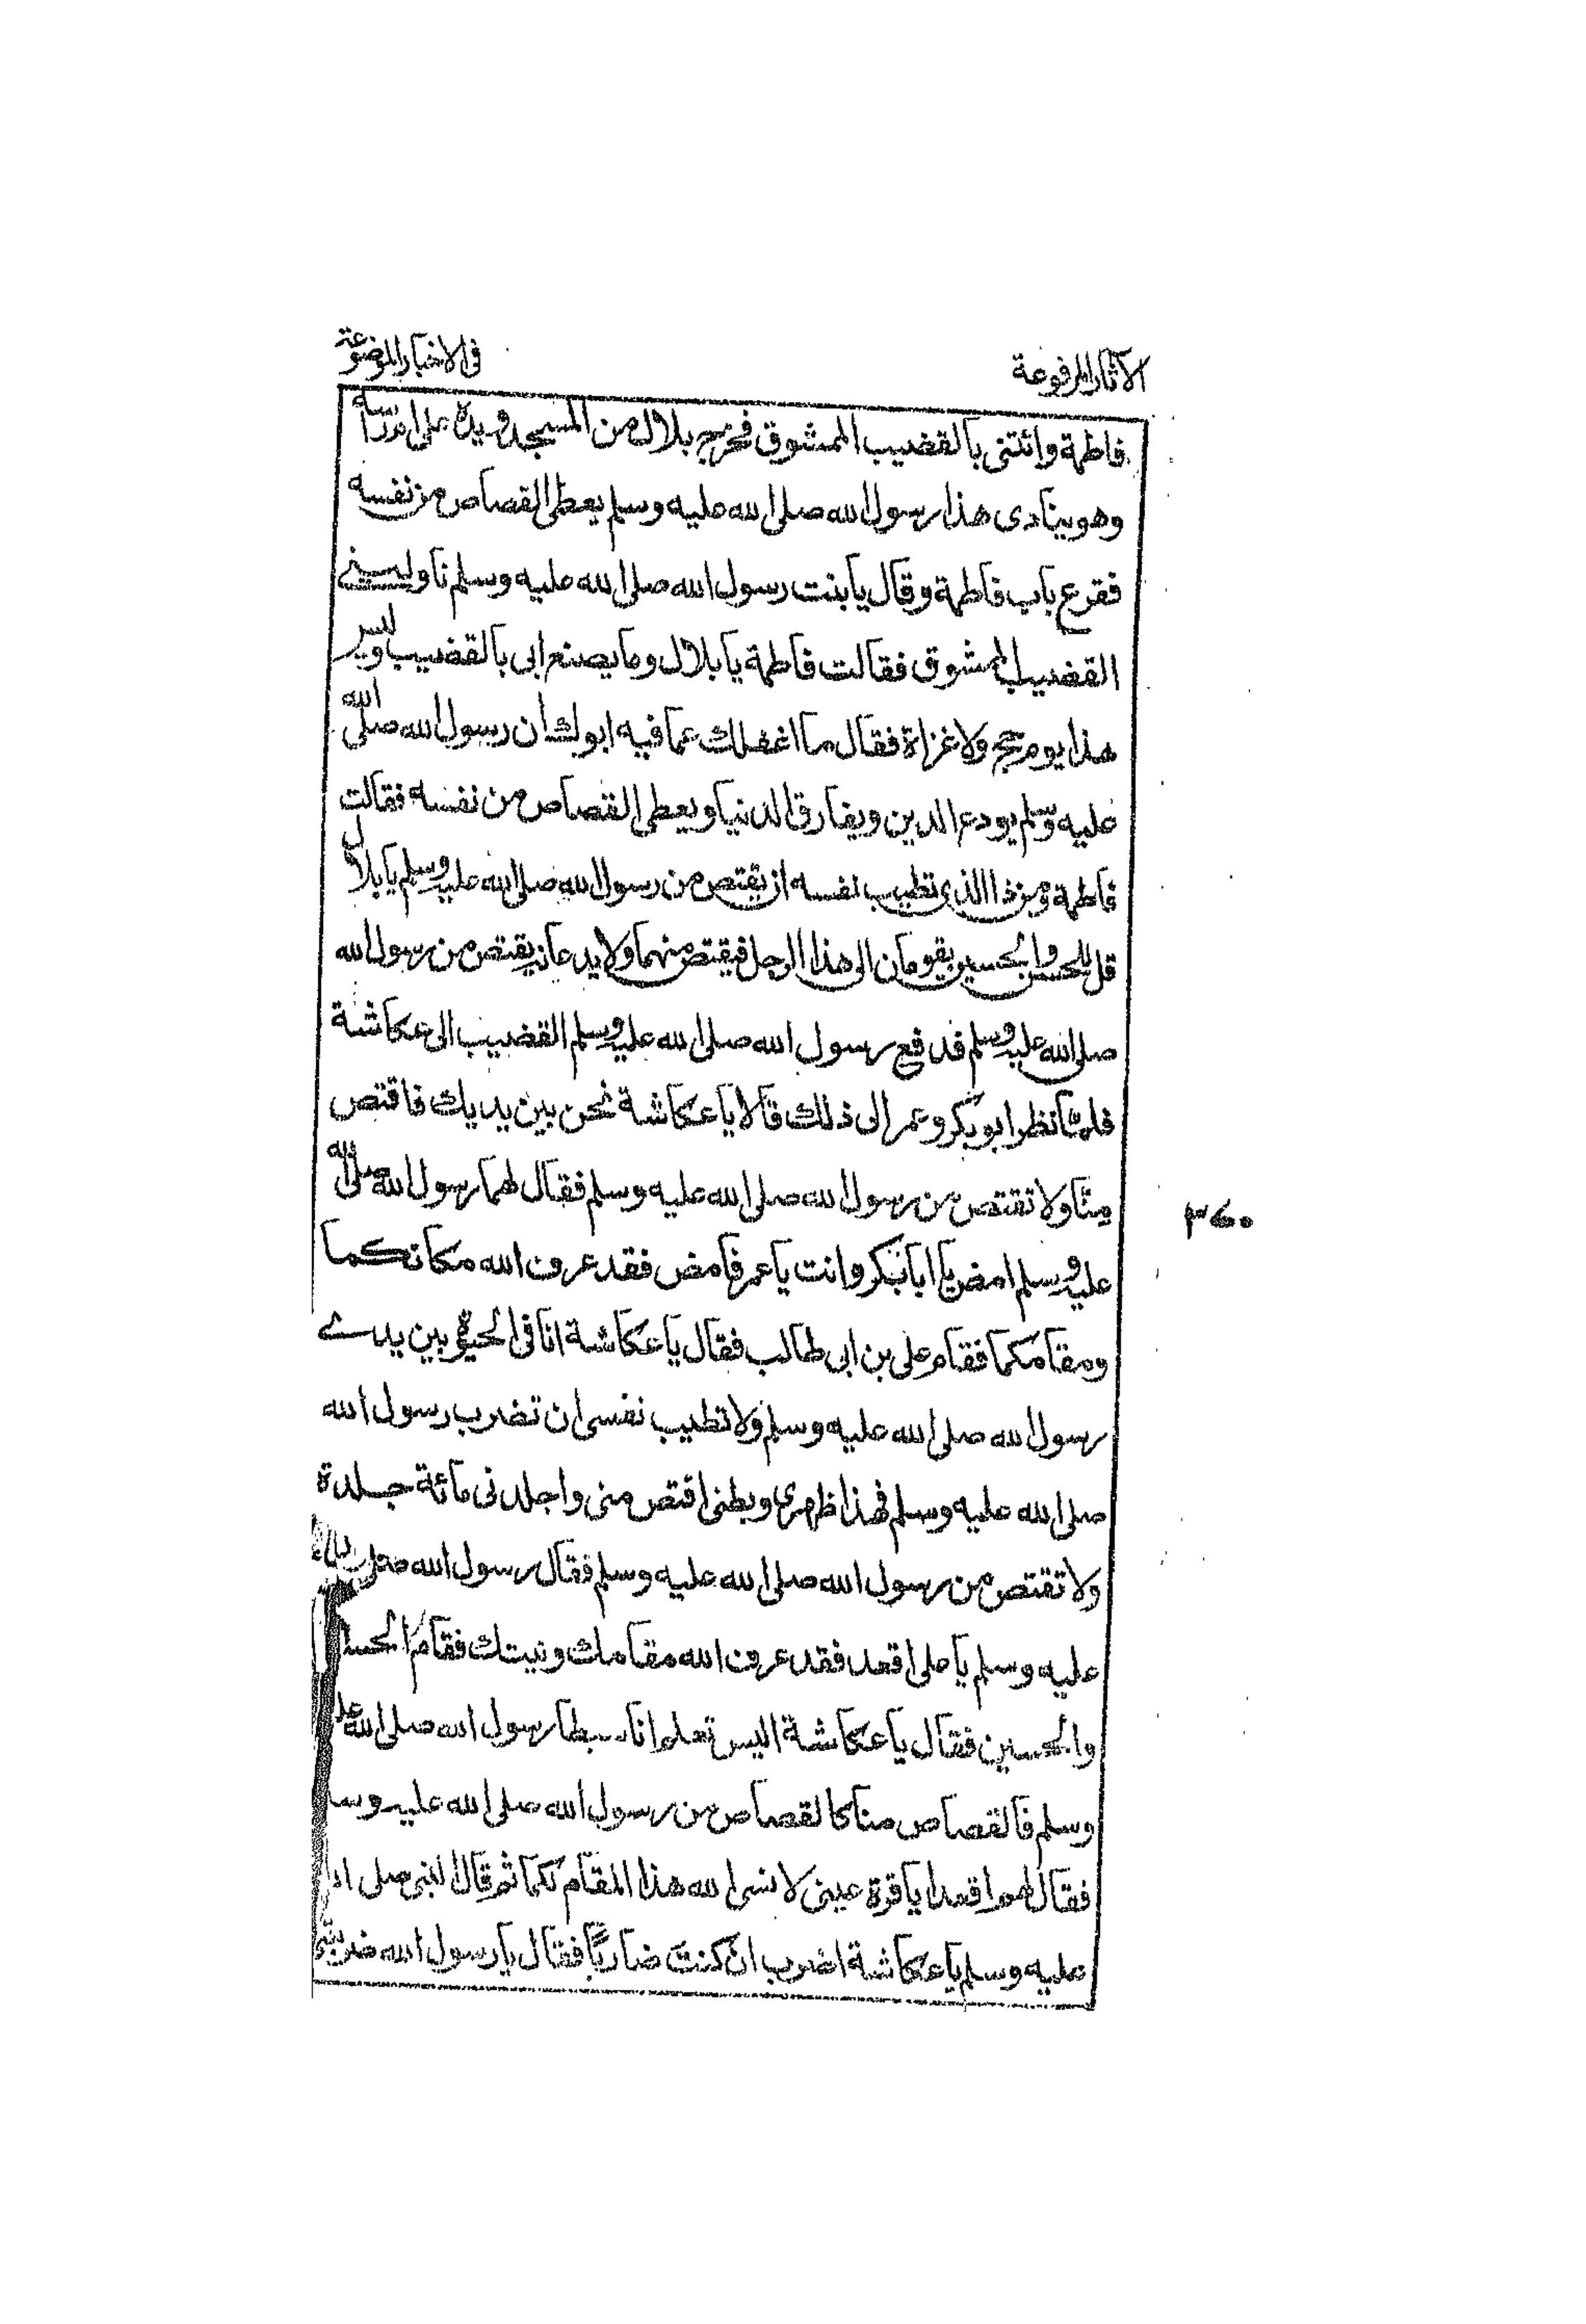 الآثار المرفوعة
فى الاخبار الموضوعة
فاطمة وائتنى بالقضيب الممشوق فخرج بلال من المسجد ويده على ام راسه
وهو ينادى هذا رسول الله صلى الله عليه وسلم يعطى القصاص من نفسه
فقرع باب فاطمة وقال يا بنت رسول الله صلى الله عليه وسلم ناولينى
القضيب الممشوق فقالت فاطمة يا بلال وما يصنع ابى بالقضيب وليس
هذا يوم حج ولا غزاة فقال ما اغفلك عما فيه ابوك ان رسول الله صلى الله
عليه وسلم يودع الدين ويفارق الدنيا ويعطى القصاص من نفسه فقالت
فاطمة ومن ذا الذى تطيب نفسه ان يقتص من رسول الله صلى الله عليه وسلم يا بلال
قل للحسن والحسين يقومان الى هذا الرجل فيقتص منهما ولا يدعانه يقتص من رسول الله
صلى الله عليه وسلم فدفع رسول الله صلى الله عليه وسلم القضيب الى عكاشة
فلما نظر ابو بكر وعمر الى ذلك قالا يا عكاشة نحن بين يديك فاقتص
منا ولا تقتص من رسول الله صلى الله عليه وسلم فقال لهما رسول الله صلى الله
عليه وسلم امض يا ابا بكر وانت يا عمر فامض فقد عرف الله مكانكما
ومقامكما فقام على بن ابى طالب فقال يا عكاشة انا فى الحيوة بين يدے
رسول الله صلى الله عليه وسلم ولا تطيب نفسى ان تضرب رسول الله
صلى الله عليه وسلم فهذا ظهرى وبطنى اقتص منى واجلدنى مائة جلدة
ولا تقتص من رسول الله صلى الله عليه وسلم فقال رسول الله صلى الله
عليه وسلم يا على اقعد فقد عرف الله مقامك ونيتك فقام الحسن
والحسين فقال يا عكاشة اليس تعلم انا سبطا رسول الله صلى الله عليه
وسلم فالقصاص منا كالقصاص من رسول الله صلى الله عليه وسلم
فقال لهما اقعدا يا قرة عينى لا نسى الله هذا المقام لكما ثم قال النبى صلى الله
عليه وسلم يا عكاشة اضرب ان كنت ضاربًا فقال يا رسول الله ضربتنى
٣٦٠